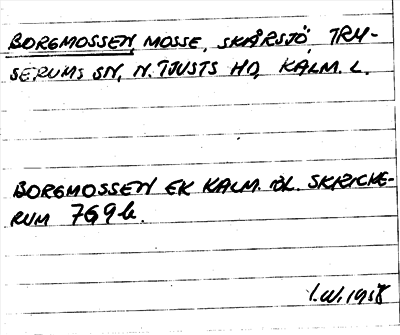 BORGMOSSEN, MOSSE, SKÅRSJÖ, TRY-
SERUMS SN, N. TJUSTS HD, KALM. L.
BORGMOSSEN EK KALM. BL. SKRICKE-
RUM 7G9b.
I.W. 1958